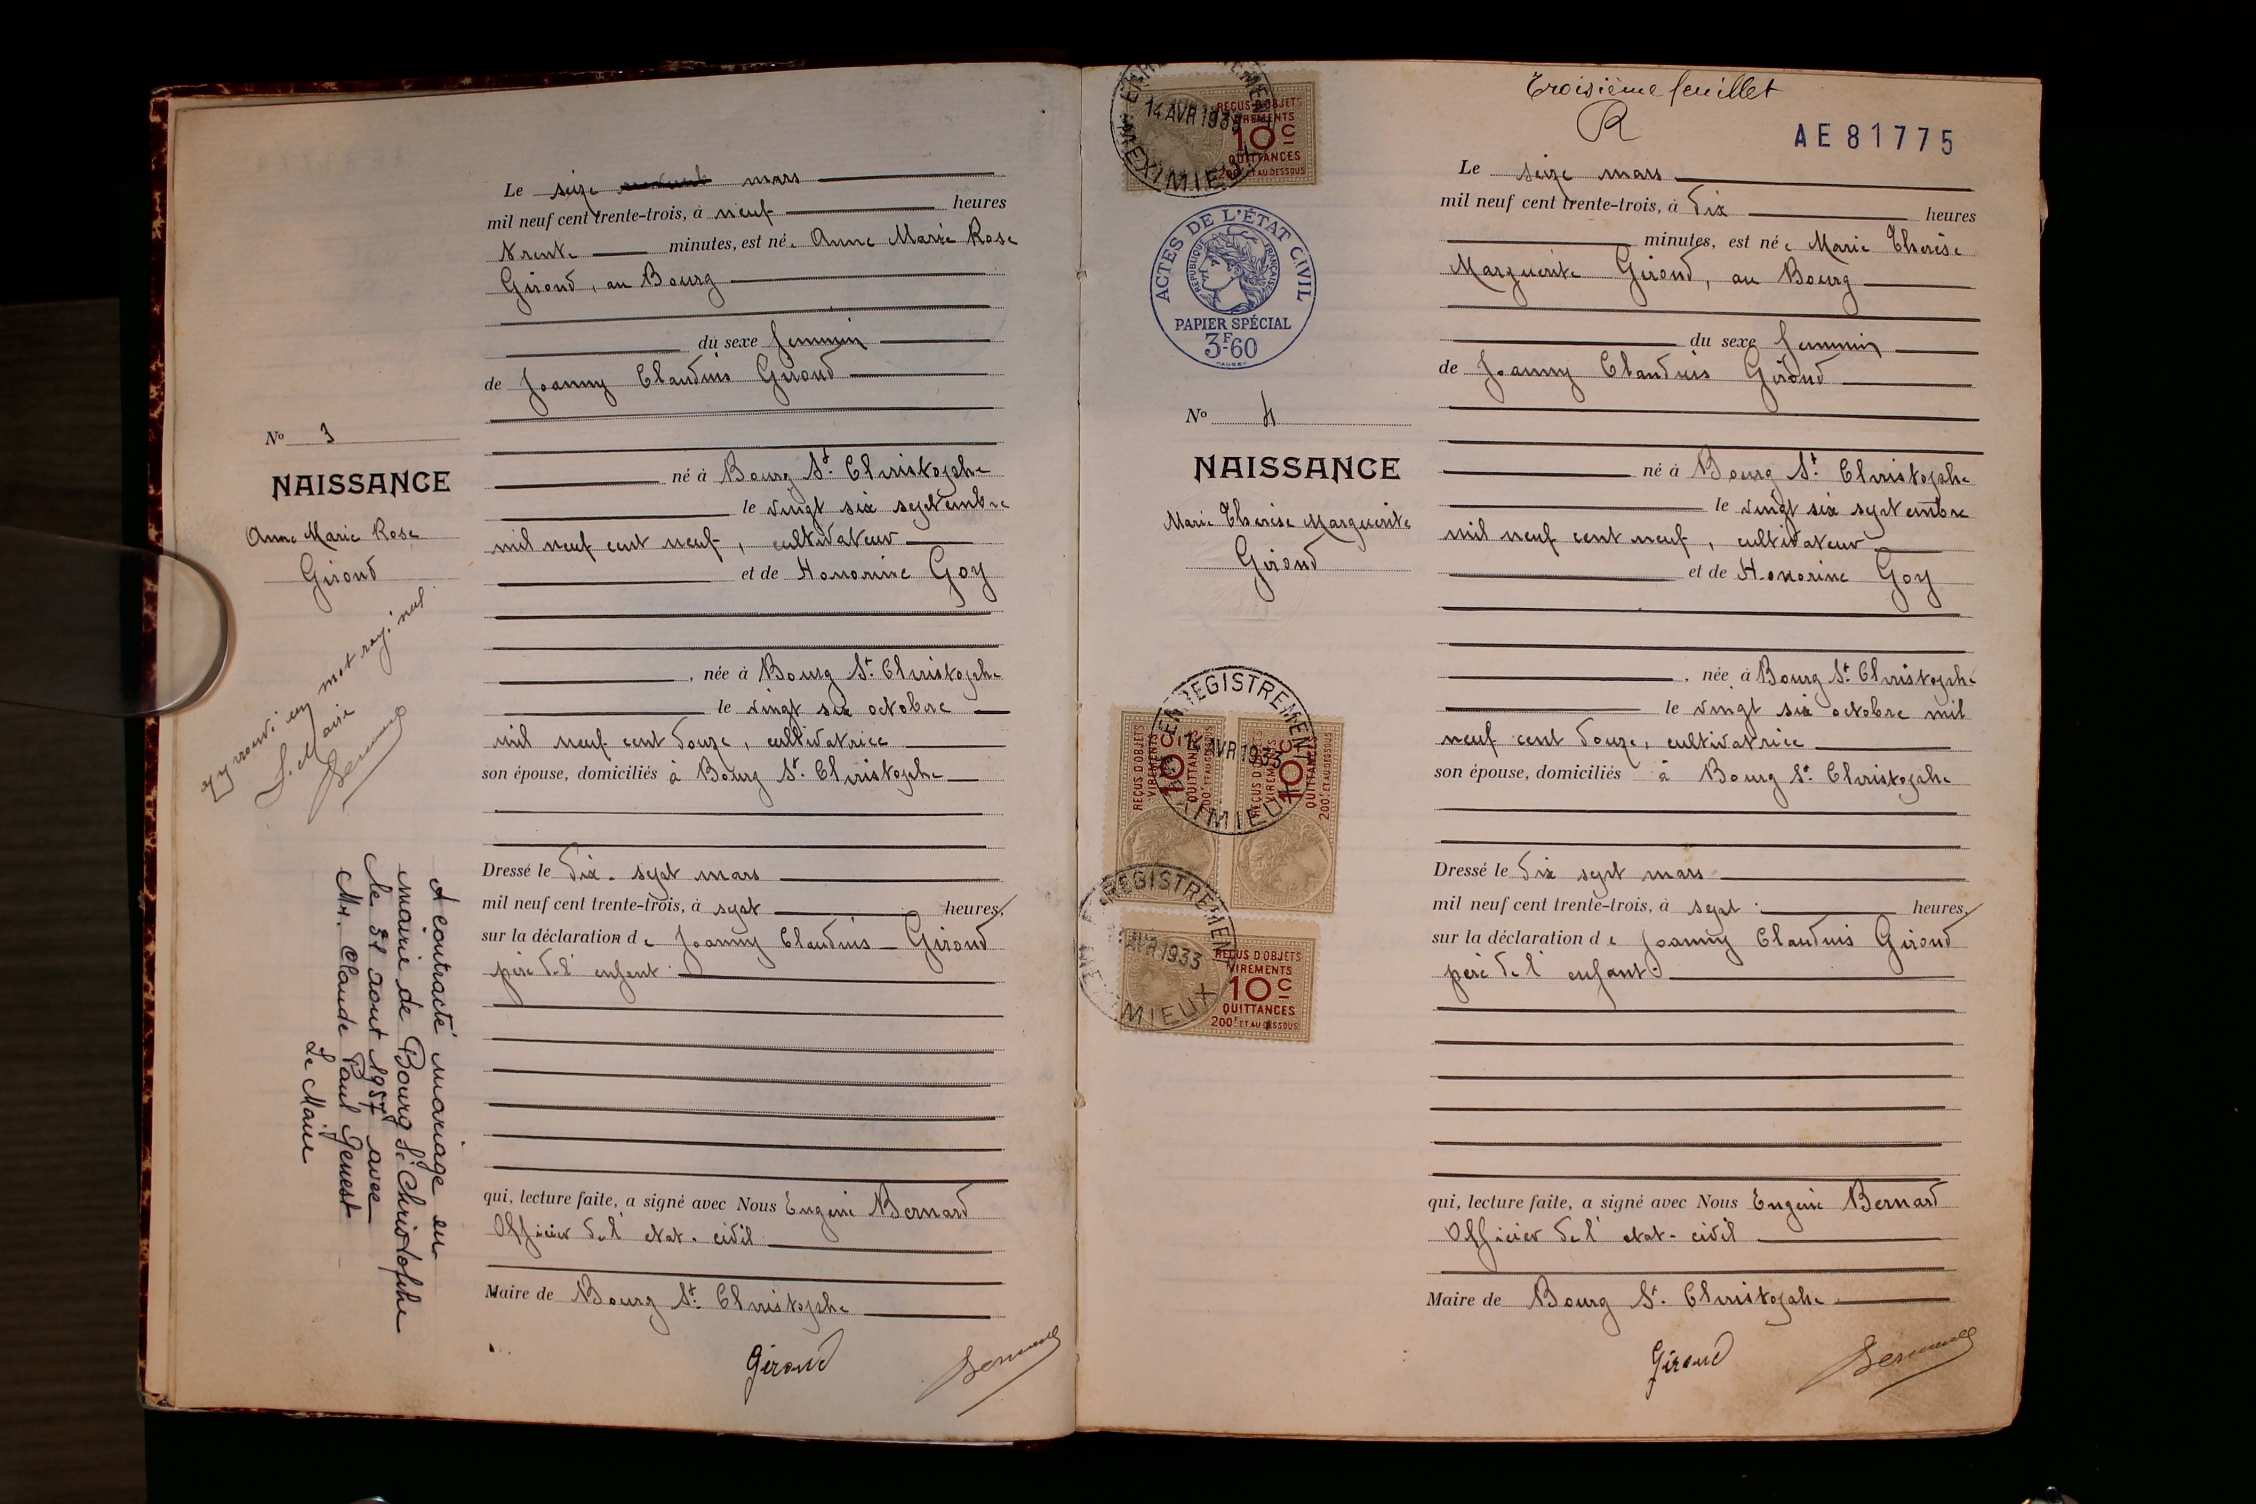 Le seize mars
mil neuf cent trente-trois, à neuf heures
trente minutes, est née Anne Marie Rose
Giroud, au Bourg
du sexe feminin
de Joanny Claudius Giroud
né à Bourg St. Christophe
le vingt six septembre
mil neuf cent neuf, cultivateur
et de Honorine Goy
, née à Bourg St. Christophe
le vingt six octobre
mil neuf cent douze, cultivatrice
son épouse, domiciliés à Bourg St. Christophe
Dressé le dix-sept mars
mil neuf cent trente-trois, à sept heures,
sur la déclaration de Joanny Claudius Giroud
père de l'enfant
qui, lecture faite, a signé avec Nous Eugène Bernard
Officier de l'etat-civil
Maire de Bourg St. Christophe
Giroud
No 3
NAISSANCE
Anne Marie Rose
Giroud
Approuvé un mot rayé nul
Le Maire
A contracté mariage en
mairie de Bourg St. Christophe
le 31 aout 1957 avec
Mr. Claude Paul Genest
Le Maire
Troisième feuillet
AE 81775
ENREGISTREMENT
14 AVR 1933
MEXIMIEUX
REÇUS D'OBJETS
VIREMENTS
10c
QUITTANCES
200F ET AU DESSOUS
ACTES DE L'ÉTAT CIVIL
RÉPUBLIQUE FRANÇAISE
PAPIER SPÉCIAL
3F-60
No 4
NAISSANCE
Marie Therèse Marguerite
Giroud
ENREGISTREMENT
14 AVR 1933
MEXIMIEUX
REÇUS D'OBJETS
VIREMENTS
10c
QUITTANCES
200F ET AU DESSOUS
REÇUS D'OBJETS
VIREMENTS
10c
QUITTANCES
200F ET AU DESSOUS
ENREGISTREMENT
AVR 1933
MEXIMIEUX
REÇUS D'OBJETS
VIREMENTS
10c
QUITTANCES
200F ET AU DESSOUS
Le seize mars
mil neuf cent trente-trois, à dix heures
minutes, est née Marie Therèse
Marguerite Giroud, au Bourg
du sexe feminin
de Joanny Claudius Giroud
né à Bourg St. Christophe
le vingt six septembre
mil neuf cent neuf, cultivateur
et de Honorine Goy
, née à Bourg St. Christophe
le vingt six octobre mil
neuf cent douze, cultivatrice
son épouse, domiciliés à Bourg St. Christophe
Dressé le dix sept mars
mil neuf cent trente-trois, à sept heures,
sur la déclaration de Joanny Claudius Giroud
père de l'enfant
qui, lecture faite, a signé avec Nous Eugène Bernard
Officier de l'etat-civil
Maire de Bourg St. Christophe
Giroud